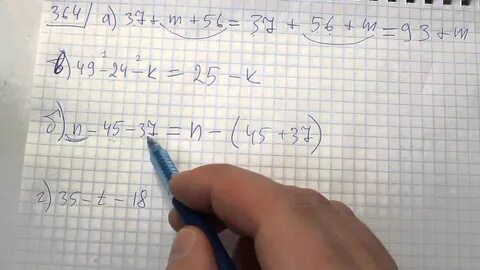 364 а) 37 + m + 56 = 37 + 56 + m = 93 + m
в) 49 - 24 - k = 25 - k
б) n - 45 - 37 = n - (45 + 37)
г) 35 - t - 18